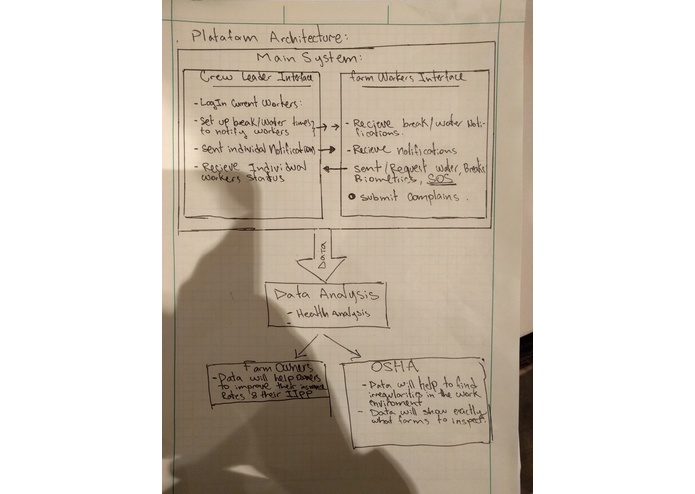 Platafam Architecture:
Main System:
Crew Leader Interface
- LogIn Current Workers:
- Set up break/water times
to notify workers
- sent individal Notification
- Recieve Individual
Workers Status
farm Workers Interface
- Recieve break/water Noti-
fications.
- Recieve notifications
sent/Request water, Breaks
Biometrics, SOS
submit Complains.
DATA
Data Analysis
- Health Analysis
-
Farm Owners
- Data will help owners
to improve their insurance
Rates & their IIPP
OSHA
- Data will help to find
irregularities in the work
enviroment
- Data will show exactly
what farms to inspect.